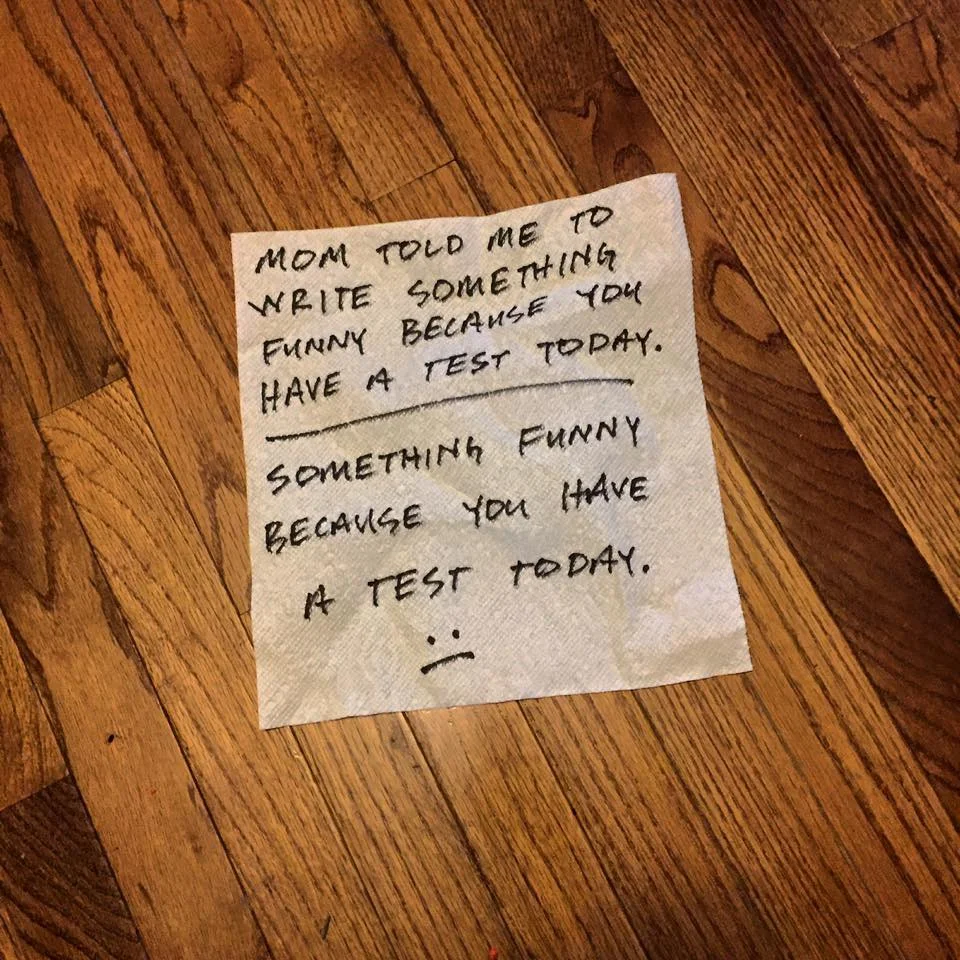 MOM TOLD ME TO
WRITE SOMETHING
FUNNY BECAUSE YOU
HAVE A TEST TODAY.
SOMETHING FUNNY
BECAUSE YOU HAVE
A TEST TODAY.